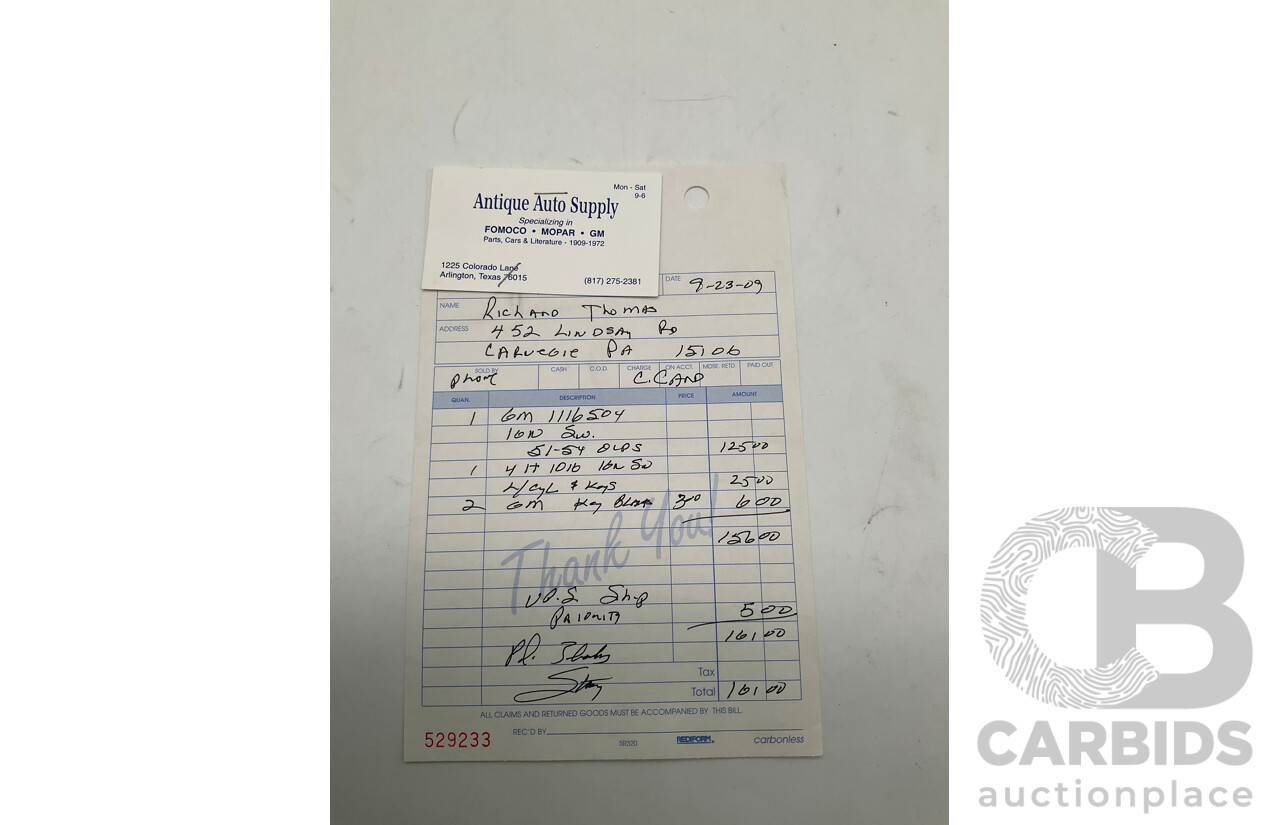 Mon - Sat
9-6
Antique Auto Supply
Specializing in
FOMOCO • MOPAR • GM
Parts, Cars & Literature - 1909-1972
1225 Colorado Lane
Arlington, Texas 76015
(817) 275-2381
DATE 9-23-09
NAME Richard Thomas
ADDRESS 452 Lindsay Rd
Carnegie PA 15106
SOLD BY CASH C.O.D. CHARGE ON ACCT. MDSE. RETD. PAID OUT
Phone C. Card
QUAN. DESCRIPTION PRICE AMOUNT
1 GM 1116504
IGN Sw.
51-54 OLDS 125 00
1 IGN Sw
w/cyl & Keys 25 00
2 GM Key Blank 3 00 6 00
156 00
Thank You!
Ship
Priority 5 00
161 00
Pd.
Tax
Total 161 00
ALL CLAIMS AND RETURNED GOODS MUST BE ACCOMPANIED BY THIS BILL.
529233
REC'D BY
5R320
REDIFORM
carbonless
CB
CARBIDS
auctionplace